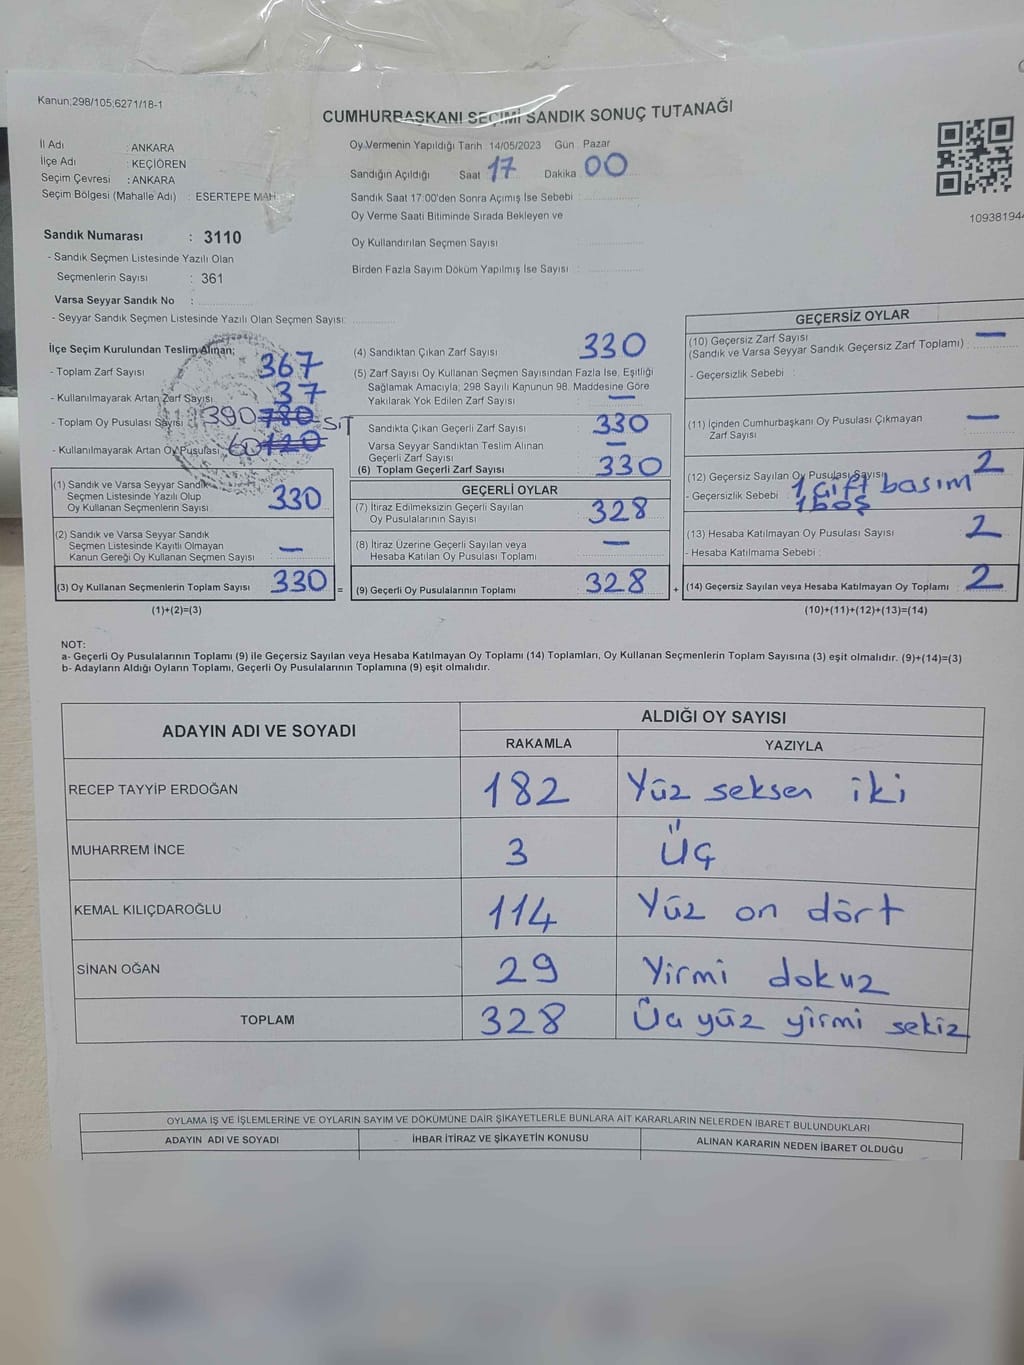 Kanun;298/105;6271/18-1
CUMHURBAŞKANI SEÇİMİ SANDIK SONUÇ TUTANAĞI
İl Adı : ANKARA
İlçe Adı : KEÇİÖREN
Seçim Çevresi : ANKARA
Seçim Bölgesi (Mahalle Adı) : ESERTEPE MAH.
Oy Vermenin Yapıldığı Tarih : 14/05/2023 Gün : Pazar
Sandığın Açıldığı Saat 17 Dakika 00
Sandık Saat 17:00'den Sonra Açımış İse Sebebi :
Oy Verme Saati Bitiminde Sırada Bekleyen ve
Oy Kullandırılan Seçmen Sayısı
Birden Fazla Sayım Döküm Yapılmış İse Sayısı :
1093819
Sandık Numarası : 3110
- Sandık Seçmen Listesinde Yazılı Olan
Seçmenlerin Sayısı : 361
Varsa Seyyar Sandık No :
- Seyyar Sandık Seçmen Listesinde Yazılı Olan Seçmen Sayısı:
İlçe Seçim Kurulundan Teslim Alınan;
- Toplam Zarf Sayısı 367
- Kullanılmayarak Artan Zarf Sayısı 37
- Toplam Oy Pusulası Sayısı : 390 780
- Kullanılmayarak Artan Oy Pusulası 60 120
(1) Sandık ve Varsa Seyyar Sandık
Seçmen Listesinde Yazılı Olup
Oy Kullanan Seçmenlerin Sayısı : 330
(2) Sandık ve Varsa Seyyar Sandık
Seçmen Listesinde Kayıtlı Olmayan
Kanun Gereği Oy Kullanan Seçmen Sayısı : —
(3) Oy Kullanan Seçmenlerin Toplam Sayısı : 330 =
(1)+(2)=(3)
(4) Sandıktan Çıkan Zarf Sayısı : 330
(5) Zarf Sayısı Oy Kullanan Seçmen Sayısından Fazla İse, Eşitliği
Sağlamak Amacıyla; 298 Sayılı Kanunun 98. Maddesine Göre
Yakılarak Yok Edilen Zarf Sayısı : —
Sandıkta Çıkan Geçerli Zarf Sayısı : 330
Varsa Seyyar Sandıktan Teslim Alınan
Geçerli Zarf Sayısı : —
(6) Toplam Geçerli Zarf Sayısı : 330
GEÇERLİ OYLAR
(7) İtiraz Edilmeksizin Geçerli Sayılan
Oy Pusulalarının Sayısı : 328
(8) İtiraz Üzerine Geçerli Sayılan veya
Hesaba Katılan Oy Pusulası Toplamı : —
(9) Geçerli Oy Pusulalarının Toplamı : 328 +
GEÇERSİZ OYLAR
(10) Geçersiz Zarf Sayısı
(Sandık ve Varsa Seyyar Sandık Geçersiz Zarf Toplamı) : —
- Geçersizlik Sebebi :
(11) İçinden Cumhurbaşkanı Oy Pusulası Çıkmayan
Zarf Sayısı : —
(12) Geçersiz Sayılan Oy Pusulası Sayısı : 2
- Geçersizlik Sebebi : 1 çift basım
1 boş
(13) Hesaba Katılmayan Oy Pusulası Sayısı : 2
- Hesaba Katılmama Sebebi :
(14) Geçersiz Sayılan veya Hesaba Katılmayan Oy Toplamı : 2
(10)+(11)+(12)+(13)=(14)
NOT:
a- Geçerli Oy Pusulalarının Toplamı (9) ile Geçersiz Sayılan veya Hesaba Katılmayan Oy Toplamı (14) Toplamları, Oy Kullanan Seçmenlerin Toplam Sayısına (3) eşit olmalıdır. (9)+(14)=(3)
b- Adayların Aldığı Oyların Toplamı, Geçerli Oy Pusulalarının Toplamına (9) eşit olmalıdır.
ADAYIN ADI VE SOYADI
ALDIĞI OY SAYISI
RAKAMLA YAZIYLA
RECEP TAYYİP ERDOĞAN 182 Yüz seksen iki
MUHARREM İNCE 3 Üç
KEMAL KILIÇDAROĞLU 114 Yüz on dört
SİNAN OĞAN 29 Yirmi dokuz
TOPLAM 328 Üç yüz yirmi sekiz
OYLAMA İŞ VE İŞLEMLERİNE VE OYLARIN SAYIM VE DÖKÜMÜNE DAİR ŞİKAYETLERLE BUNLARA AİT KARARLARIN NELERDEN İBARET BULUNDUKLARI
ADAYIN ADI VE SOYADI İHBAR İTİRAZ VE ŞİKAYETİN KONUSU ALINAN KARARIN NEDEN İBARET OLDUĞU